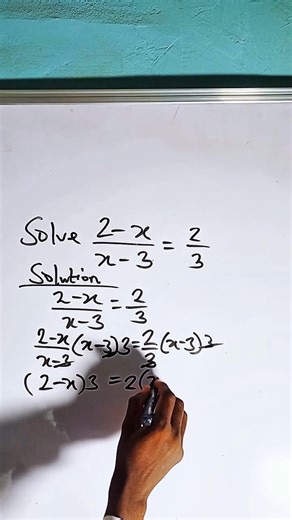 Solve (2-x)/(x-3) = 2/3
Solution
(2-x)/(x-3) = 2/3
(2-x)/(x-3) (x-3)3 = 2/3 (x-3)3
(2-x)3 = 2(